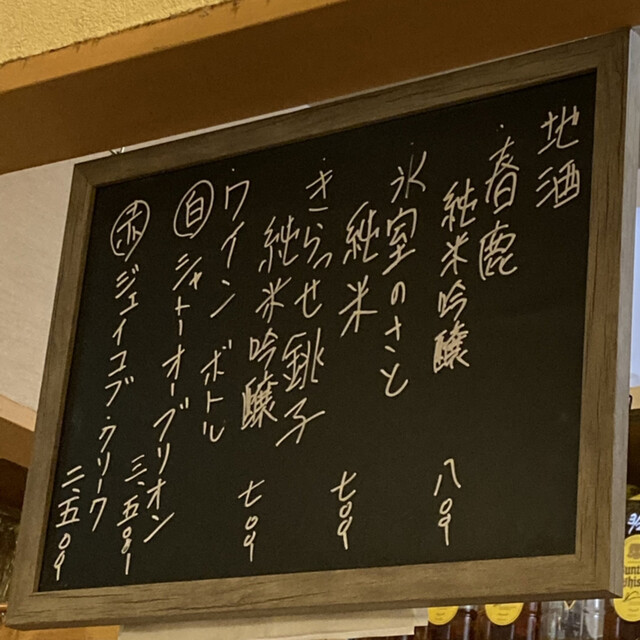 地酒
・春鹿
純米吟醸 八〇〇
・氷室のさと
純米 七〇〇
・きらっせ銚子
純米吟醸 七〇〇
・ワイン ボトル
白 シャトーオーブリオン 三、五〇〇
赤 ジェイコブ・クリーク 二、五〇〇